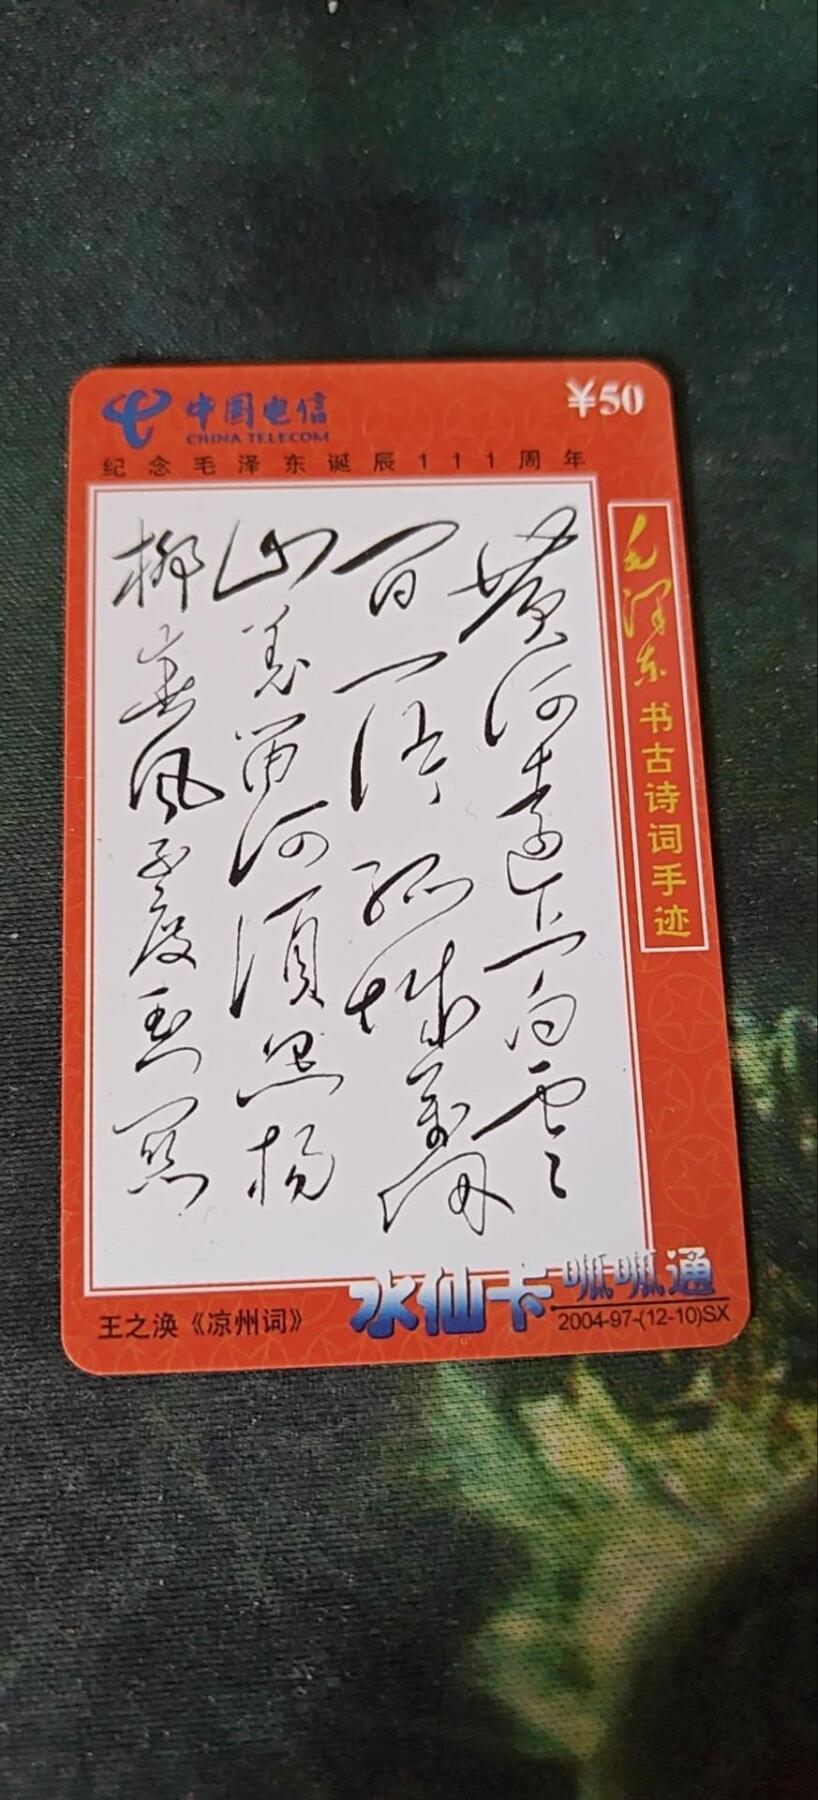 中国电信
CHINA TELECOM
¥50
纪念毛泽东诞辰111周年
毛泽东书古诗词手迹
黄河遠上白雲
间一片孤城萬仞
山羌笛何須怨楊
柳春風不度玉關
王之涣《凉州词》
水仙卡呱呱通
2004-97-(12-10)SX